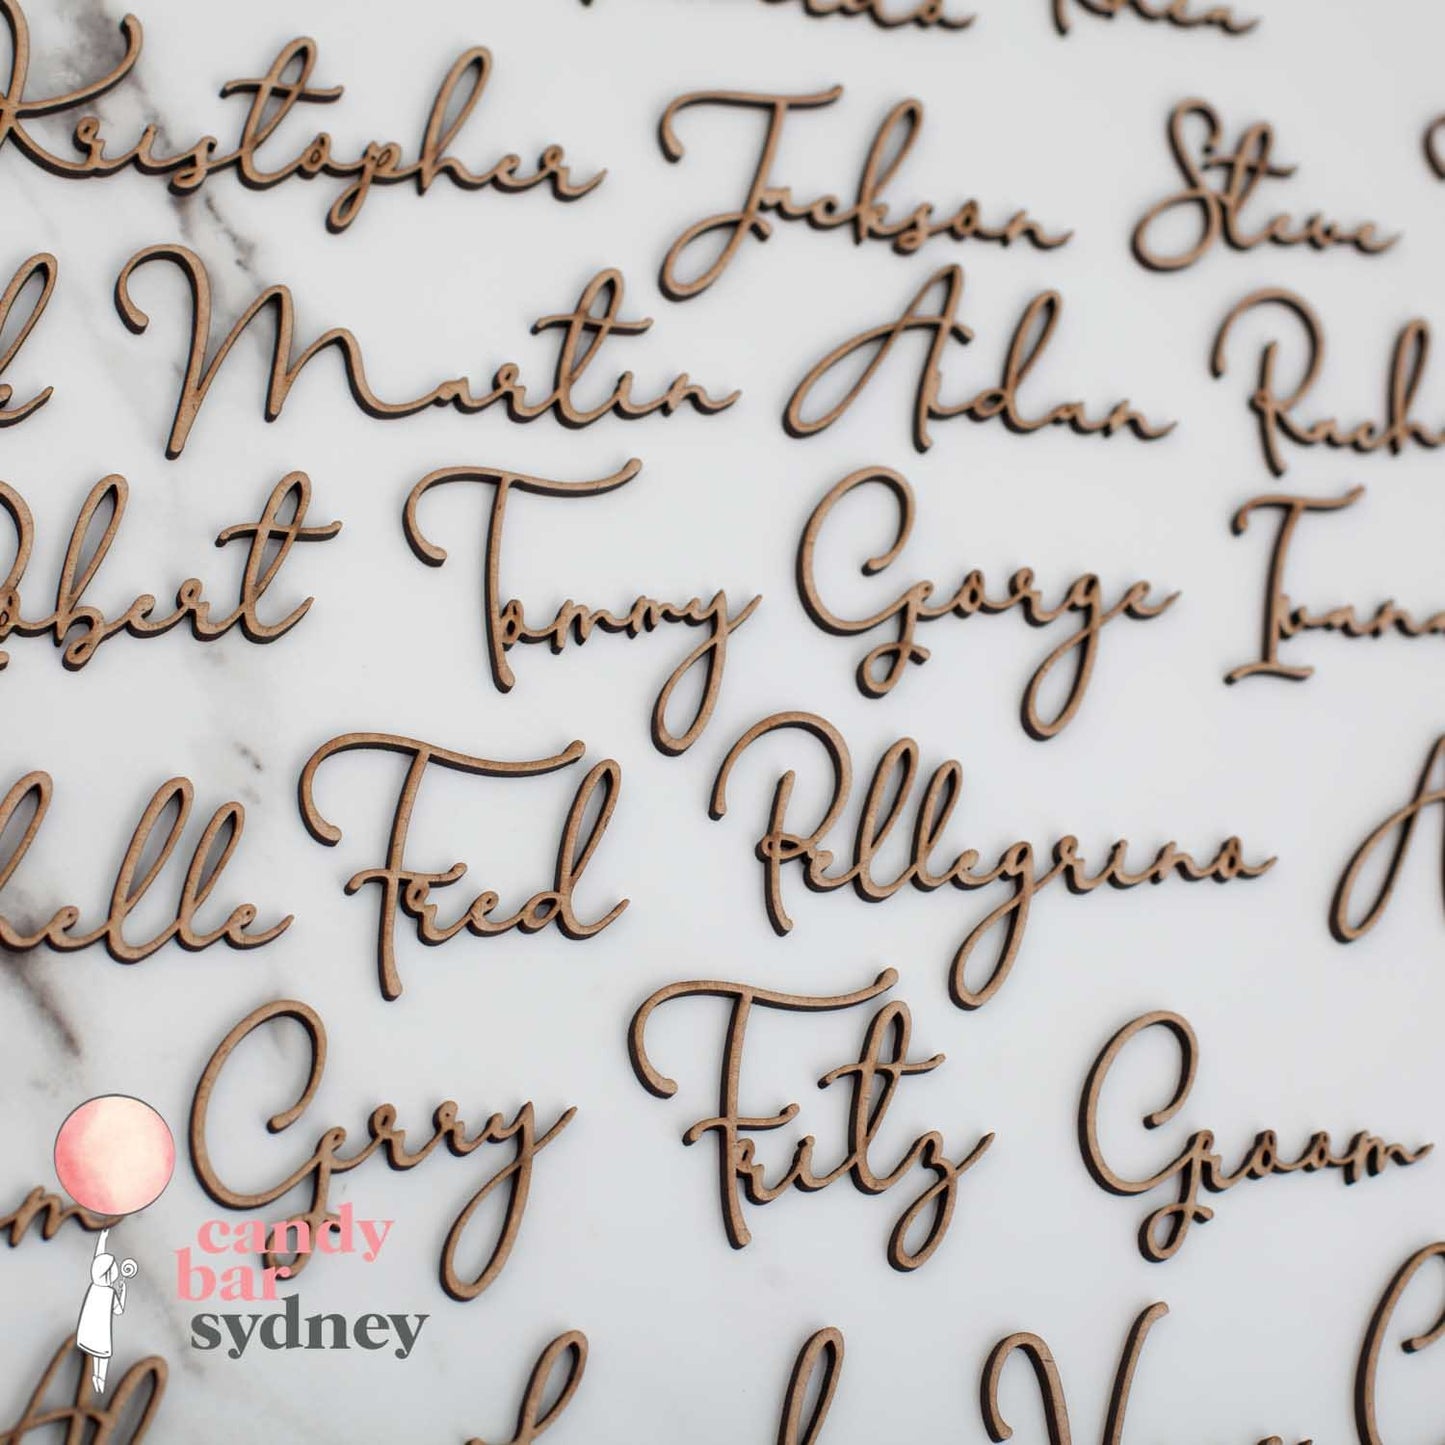 Rhea
Kristopher Jackson Steve
Martin Aidan
Robert Tommy George
Fred Pellegrino
Gerry Fritz Groom
candy
bar
sydney